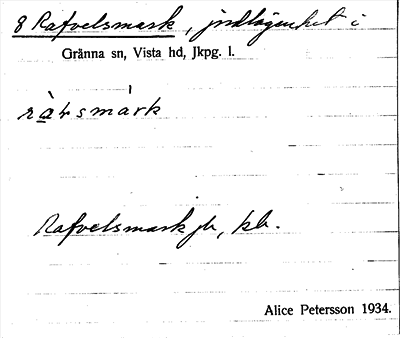 8 Rafvelsmark, jordlägenhet i
Gränna sn, Vista hd, Jkpg. l.
ràvsmark
Rafvelsmark jb, kb.
Alice Petersson 1934.